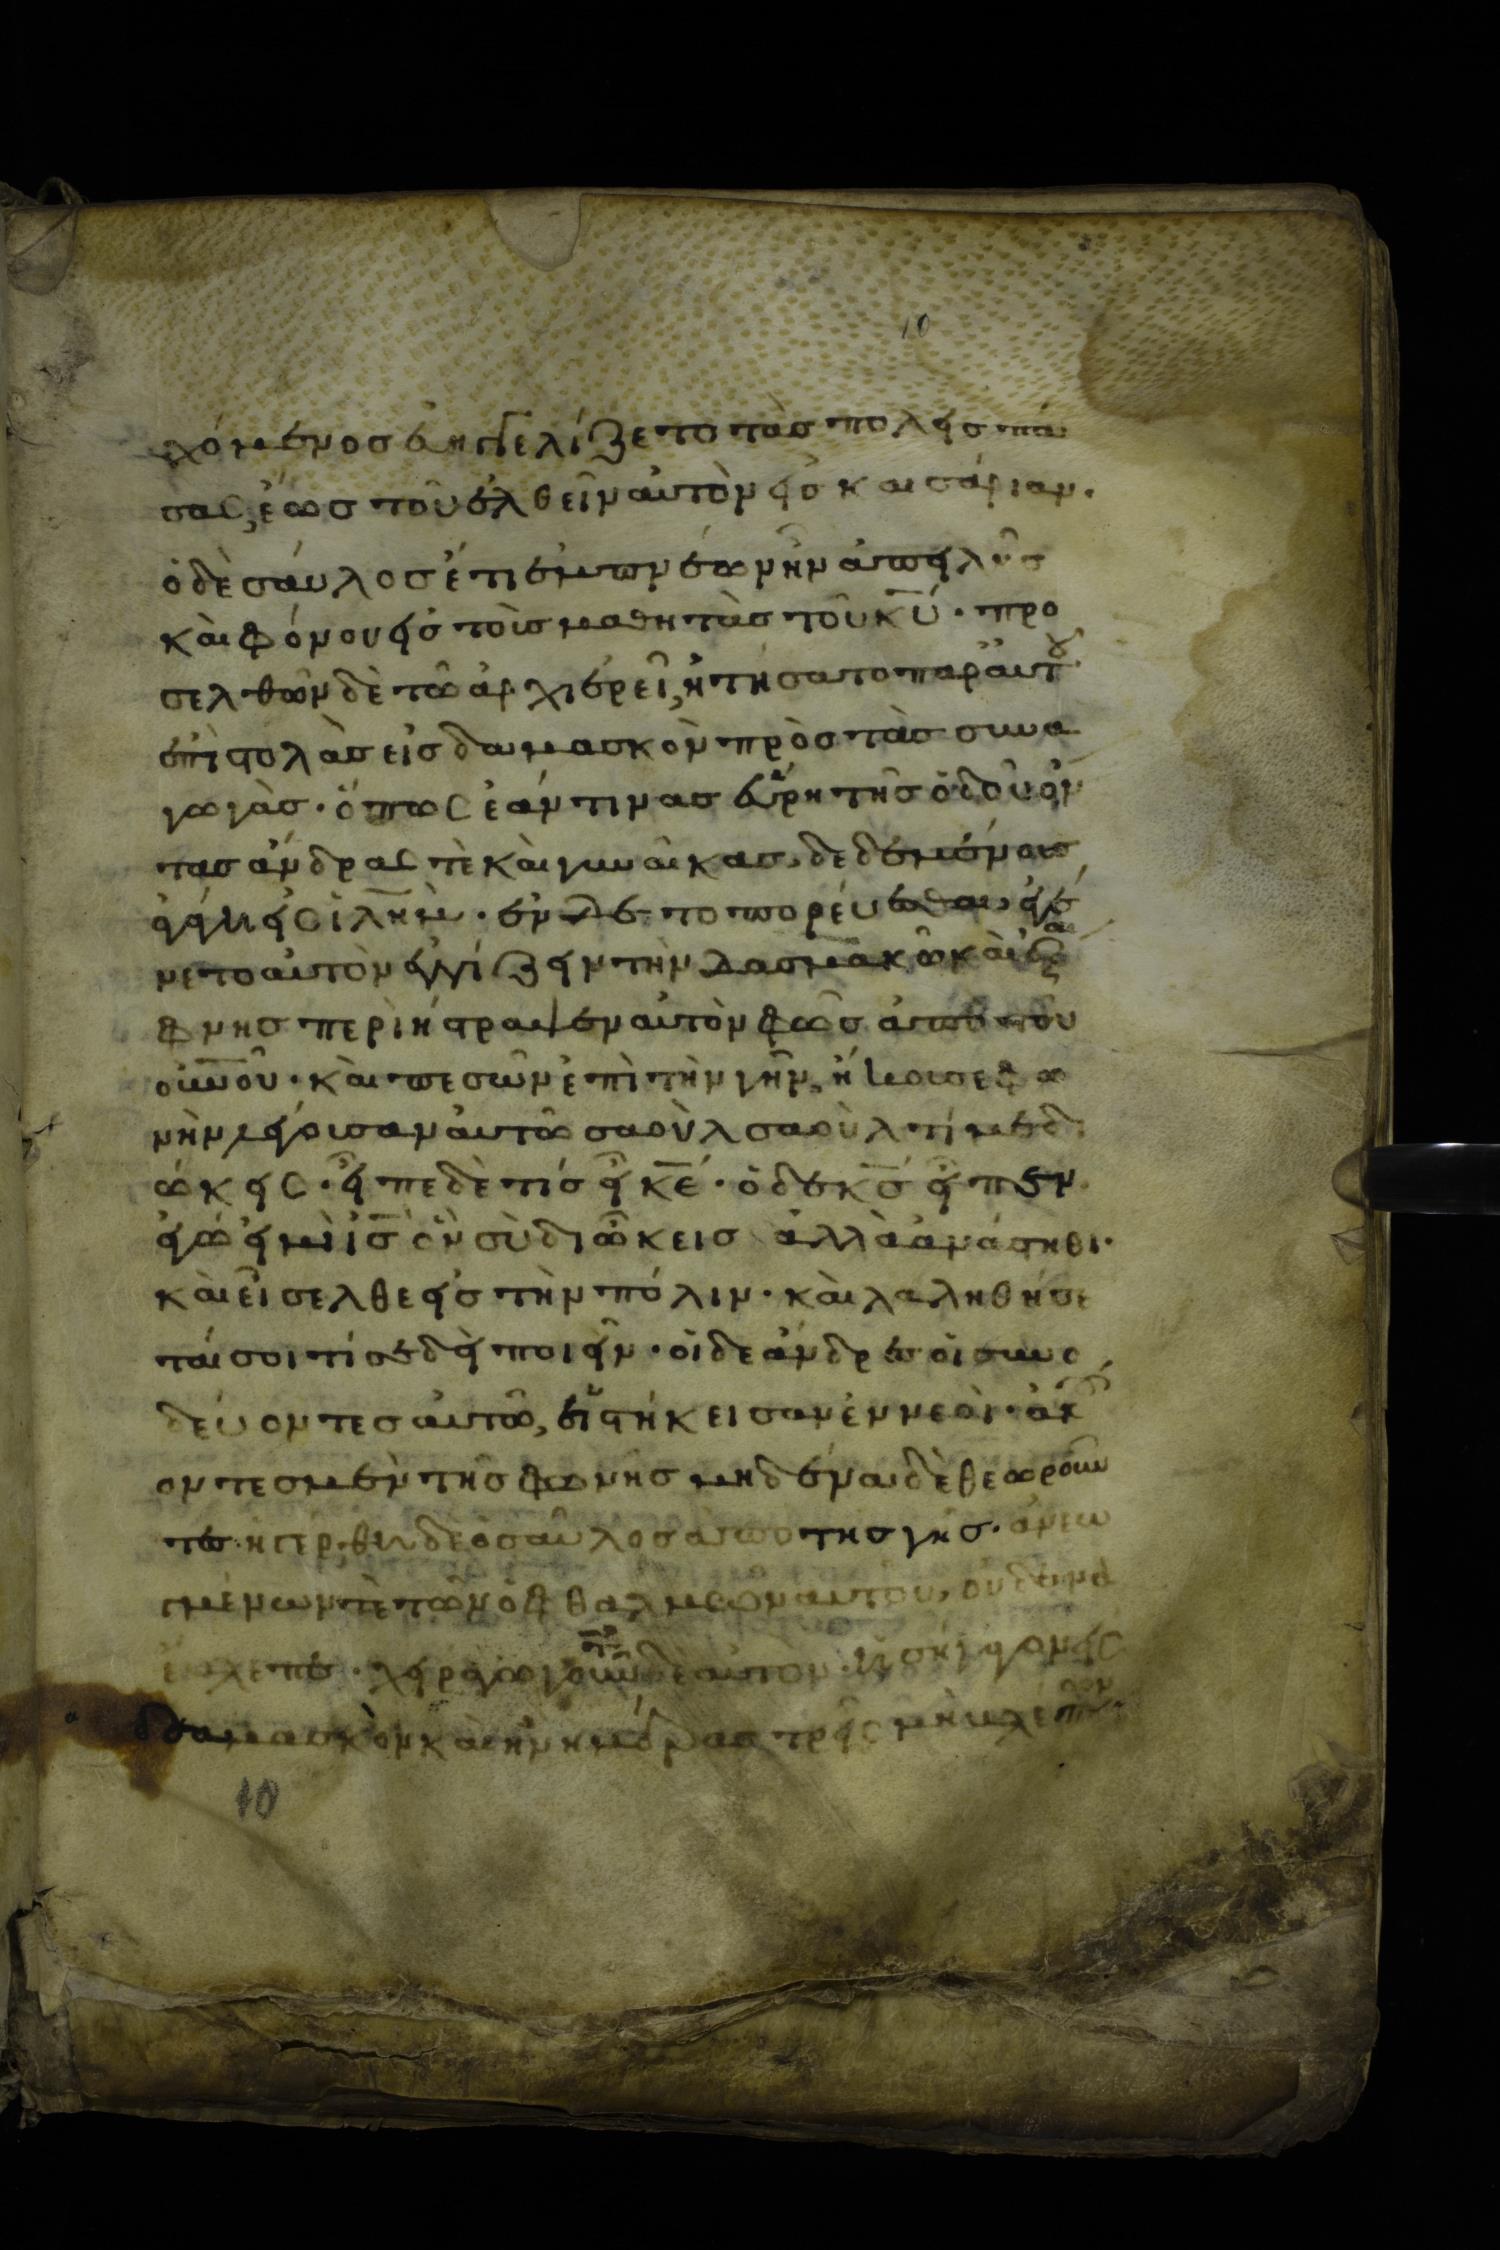 10
χόμενος εὐηγγελίζετο τὰς πολεις πά
σας, ἕως τοῦ ἐλθεῖν αὐτὸν εἰς καισάριαν.
ὁ δὲ σάυλος ἔτι ἐμπνέων ἀπειλῆς
κὰι φόνου εἰς τοὺς μαθητὰς τοῦ κ̅υ̅· προ
σελθὼν δὲ τῶ ἀρχιερεῖ, ἠτήσατο παρ' ἀυτοῦ
ἐπιστολὰς εἰς δαμασκὸν πρὸς τὰς συνα
γωγὰς· ὅπως ἐάν τινας ἕυρη τῆς ὁδοῦ ὄν
τας ἄνδρας τὲ κὰι γυναῖκας, δεδεμένους
ἀγάγη εἰς ἱλ̅η̅μ̅· ἐν δὲ τὸ πορέυεσθαι ἐγέ
νετο αὐτὸν ἐγγίζειν τὴν δαμασκῶ κὰι ἐξαί
φνης περιήστραψεν αὐτὸν φῶς ἀπὸ τοῦ
ο̅υ̅ν̅ου· κὰι πεσὼν ἐπὶ τὴν γῆν, ἤκουσε φω
νὴν λέγουσαν ἀυτῶ σαοὺλ σαοὺλ τί με δι
ώκεις· εἶπε δὲ τίς εἶ κ̅ε̅· ὁ δὲ κ̅ς̅ εἶπεν
ἐγώ εἰμὶ ι̅ς̅ ὃν σὺ διώκεις ἀλλὰ ἀνάστηθι·
κὰι εἴσελθε εἰς τὴν πόλιν· κὰι λαληθήσε
ταί σοι τί σε δεῖ ποιεῖν· οἱ δε ἄνδρες οἱ συνο
δέυοντες ἀυτῶ, εἱστήκεισαν ἐννεοὶ· ἀκού
οντες μὲν τῆς φωνῆς μηδένα δὲ θεωροῦν
τες· ηγέρθη δὲ ὁ σαῦλος ἀπὸ της γῆς· ἀνεω
γμένων τὲ τῶν ὀφθαλμῶν αυτοῦ, ουδένα
ἔβλεπε· χειραγωγοῦντες δὲ αυτὸν, εἰσήγαγον εἰς
δαμασκὸν κὰι ἦν ημέρας τρεῖς μὴ βλέπων·
10